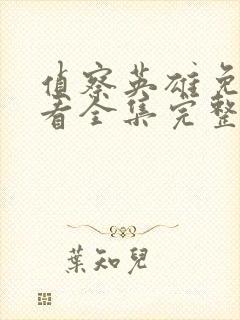 侦察英雄免
看全集完整
葉知兒